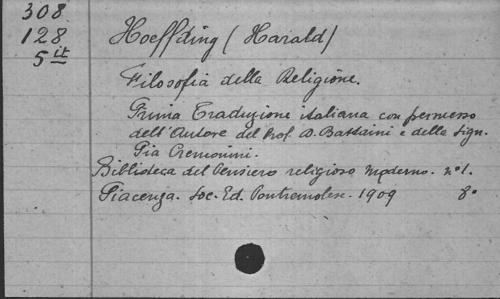 308
128
5it
Hoeffding (Harald)
Filosofia della Religione.
Prima Traduzione italiana con permesso
dell'Autore del Prof. D. Battaini e della Sign.
Pia Cremonini.
Biblioteca del Pensiero religioso moderno. n° 1.
Piacenza. Soc. Ed. Pontremolese. 1909 8°